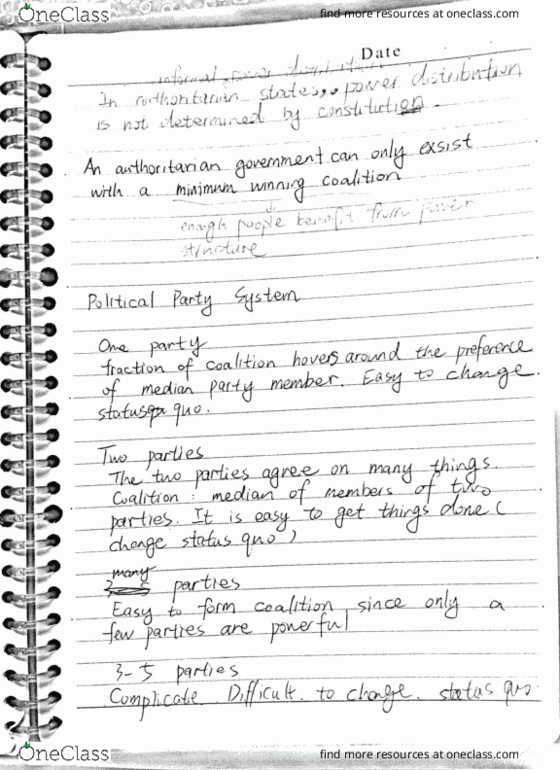 OneClass
find more resources at oneclass.com
Date
informal power distribution
In authoritarian states, power distribution
is not determined by constitution.
An authoritarian government can only exsist
with a minimum winning coalition
enough people benefit from power
structure
Political Party System
One party
fraction of coalition hovers around the preference
of median party member. Easy to change
status quo.
Two parties
The two parties agree on many things.
Coalition : median of members of two
parties. It is easy to get things done (
change status quo )
many
parties
Easy to form coalition, since only a
few parties are powerful
3-5 parties
Complicate. Difficult to change status quo
OneClass
find more resources at oneclass.com